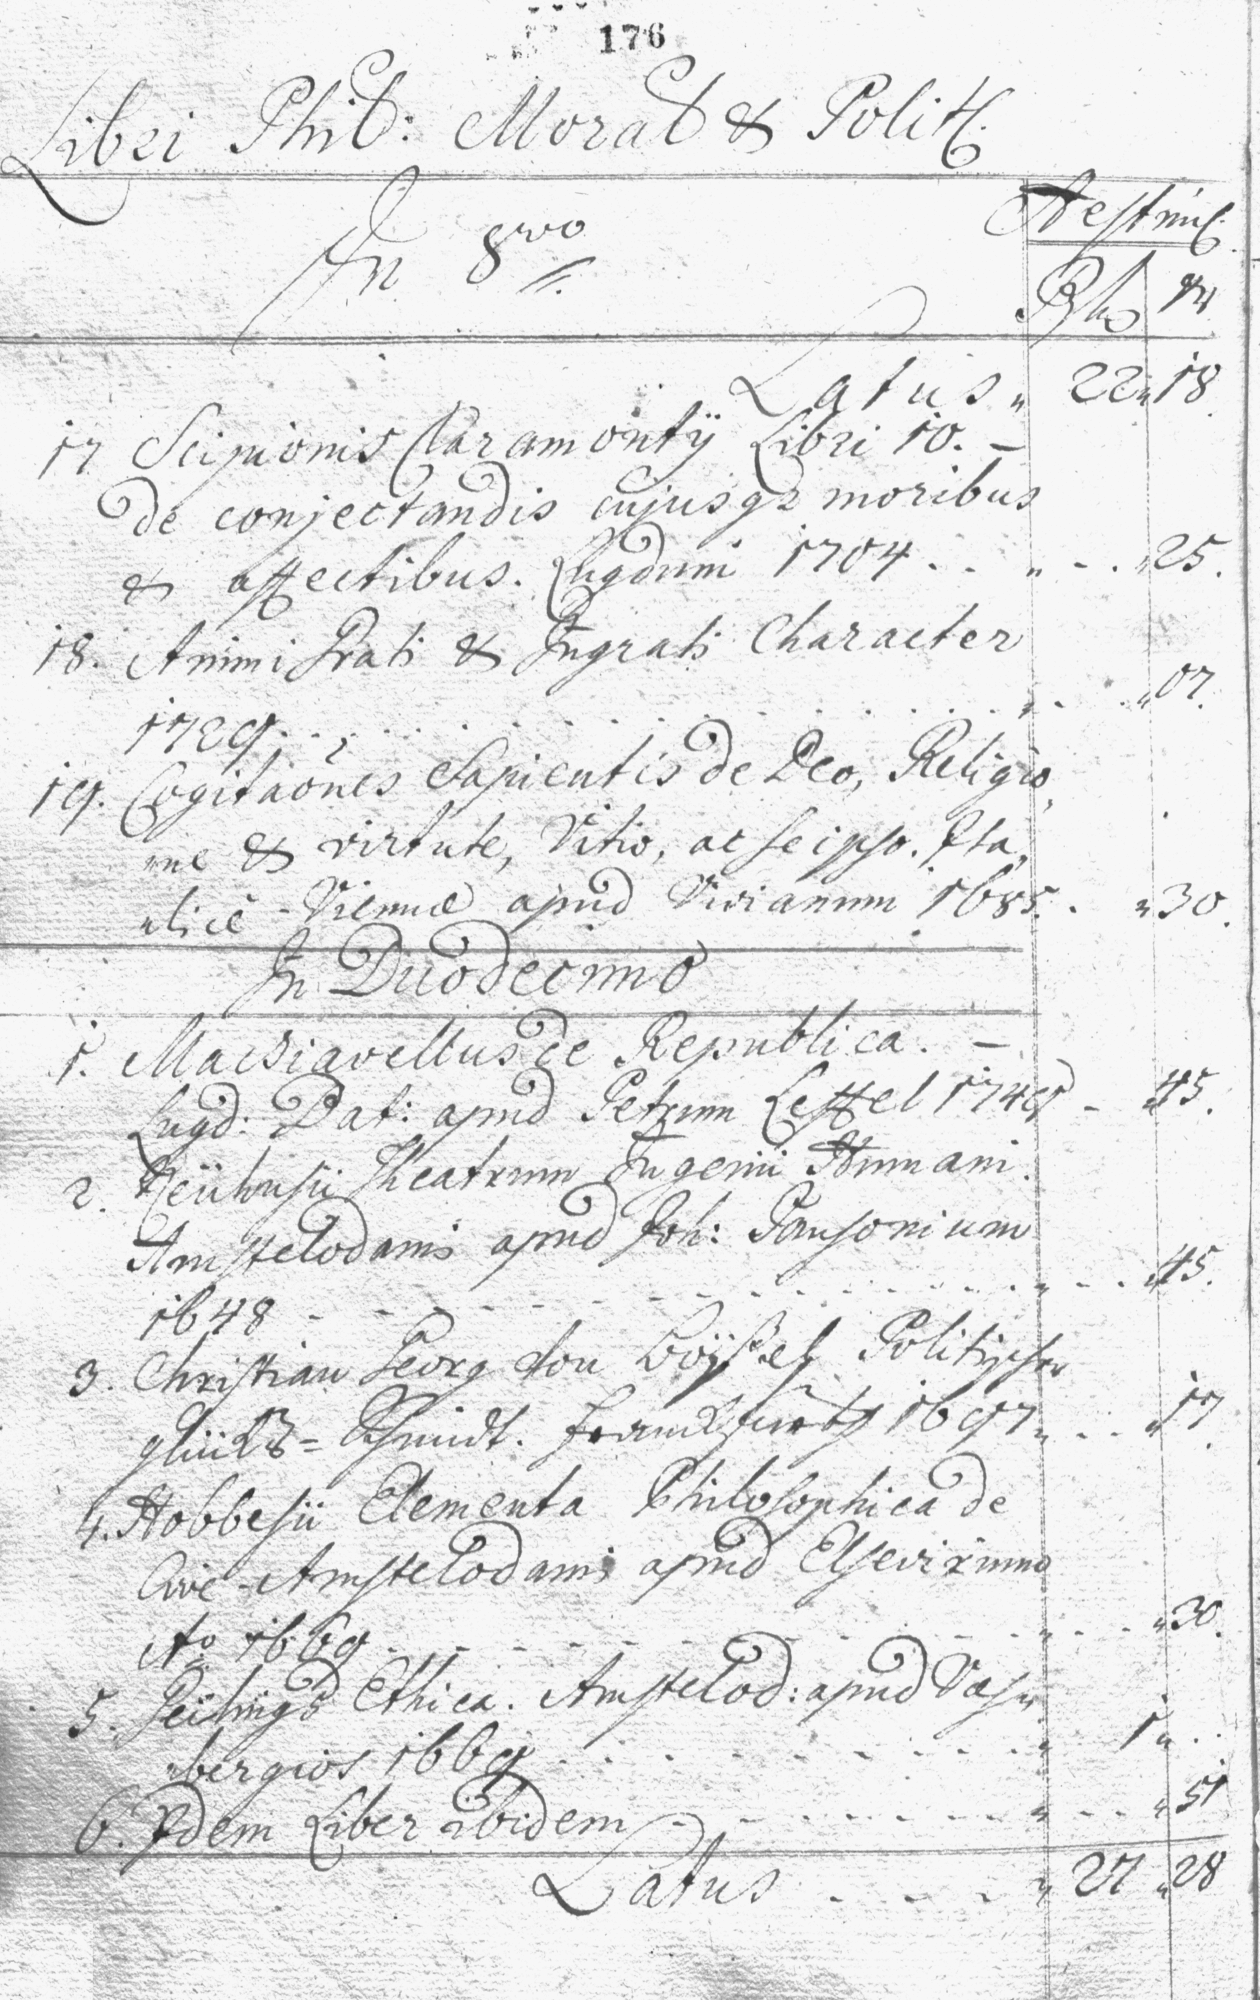 176
Libri Phil: Moral & Polit.
In 8vo
Aestim.
Rfl xr
Latus „ 22 „ 18.
17 Scipionis Claramontÿ Libri 10. –
de conjectandis cujusqz moribus
& affectibus. Lugduni 1704 . . „ - . „ 25.
18. Animi Grati & Ingrati Character
1729. . . . . . . . . „ . . „ 07.
19. Cogitaões Sapientis de Deo, Religio,
ne & virtute, Vitio, ac se ipso. Ita,
lice - Viennæ apud Vivianum 1685. . „ 30.
In Duodecimo
1. Machiavellus de Republica. –
Lugd: Bat: apud Petrum Leffel 1749 - „ 45.
2. Neühusii Theatrum Ingenii Humani.
Amstelodami apud Joh: Jansonium
1648 - - - - - - „ - - . „ 45.
3. Christian Georg von Politischer
glükhs = Schmidt. Franckfurth 1697 „ . . „ 17.
4. Hobbesii Elementa Philosophica de
Cive - Amstelodami apud Elsevirium
Aõ 1669 - - - - - - „ - - . „ 30.
5. Ethica. Amstelod: apud Vaesn
bergios 1669 . - - - - - „ 1 „ . .
6. Idem Liber ibidem . - - - - „ - - . „ 51
Latus . - - - „ 27 „ 28